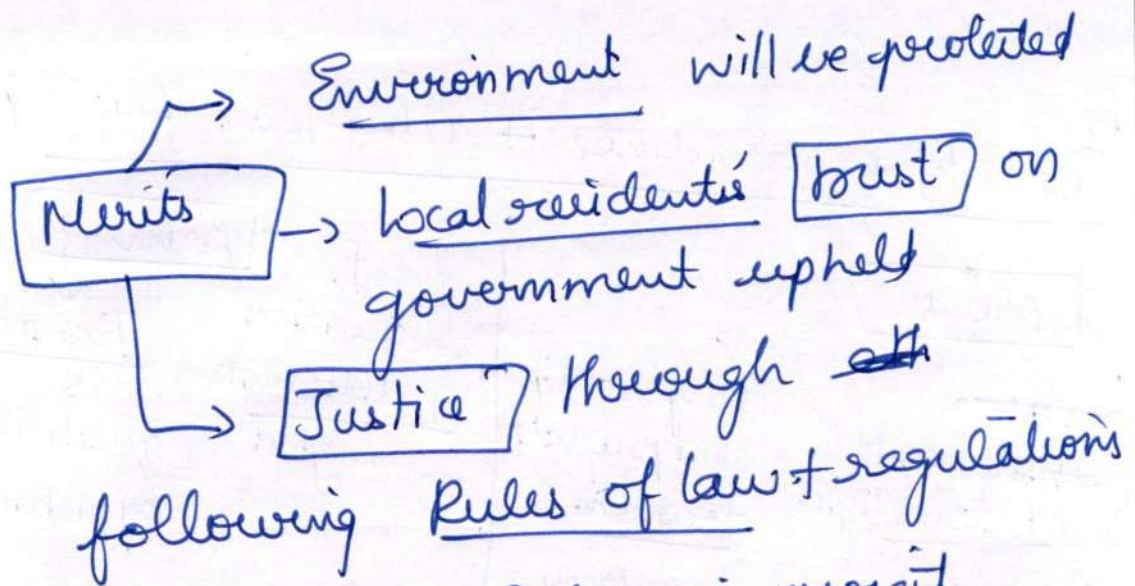 Environment will be protected
Merits
Local residents' trust on
government upheld
Justice through
following Rules of law + regulations